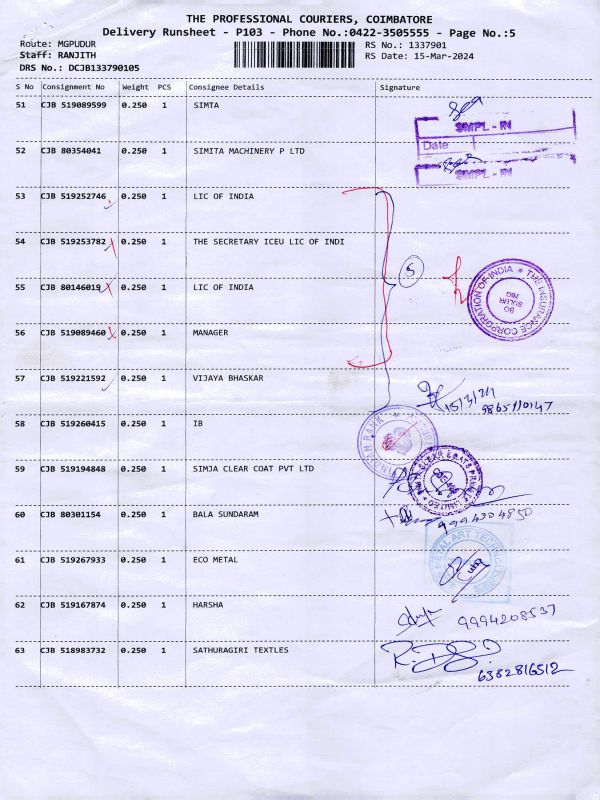 THE PROFESSIONAL COURIERS, COIMBATORE
Delivery Runsheet - P103 - Phone No.:0422-3505555 - Page No.:5
Route: MGPUDUR
Staff: RANJITH
DRS No.: DCJB133790105
RS No.: 1337901
RS Date: 15-Mar-2024
S No Consignment No Weight PCS Consignee Details Signature
51 CJB 519089599 0.250 1 SIMTA
SMPL - IN
Date
52 CJB 80354041 0.250 1 SIMITA MACHINERY P LTD
SMPL - IN
53 CJB 519252746 0.250 1 LIC OF INDIA
54 CJB 519253782 0.250 1 THE SECRETARY ICEU LIC OF INDI
5
55 CJB 80146019 0.250 1 LIC OF INDIA
THE INSURANCE CORPORATION OF INDIA
SO
SULUR
76G
56 CJB 519089460 0.250 1 MANAGER
57 CJB 519221592 0.250 1 VIJAYA BHASKAR
15/3/24
9865110147
58 CJB 519260415 0.250 1 IB
BANK
59 CJB 519194848 0.250 1 SIMJA CLEAR COAT PVT LTD
60 CJB 80301154 0.250 1 BALA SUNDARAM
9994304850
61 CJB 519267933 0.250 1 ECO METAL
METAL ART
62 CJB 519167874 0.250 1 HARSHA
9994208537
63 CJB 518983732 0.250 1 SATHURAGIRI TEXTLES
6382816512